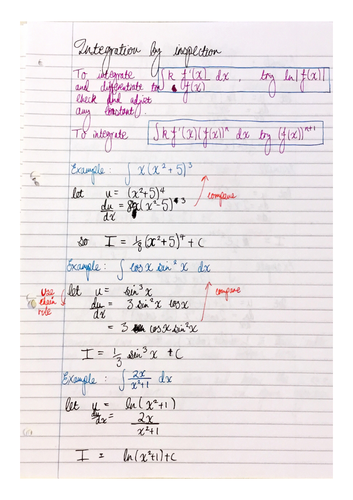 Integration by inspection
To integrate ∫ k f'(x)/f(x) dx , try ln|f(x)|
and differentiate to
check and adjust
any constant.
To integrate ∫ k f'(x)(f(x))ⁿ dx try (f(x))ⁿ⁺¹
Example ∫ x(x²+5)³
let u = (x²+5)⁴
du/dx = 8x(x²-5)³
compare
so I = 1/8 (x²+5)⁴ + C
Example : ∫ cos x sin² x dx
use chain rule
let u = sin³ x
du/dx = 3 sin² x cos x
compare
= 3 cos x sin² x
I = 1/3 sin³ x + C
Example : ∫ 2x/(x²+1) dx
let u = ln (x²+1)
du/dx = 2x/(x²+1)
I = ln(x²+1)+C